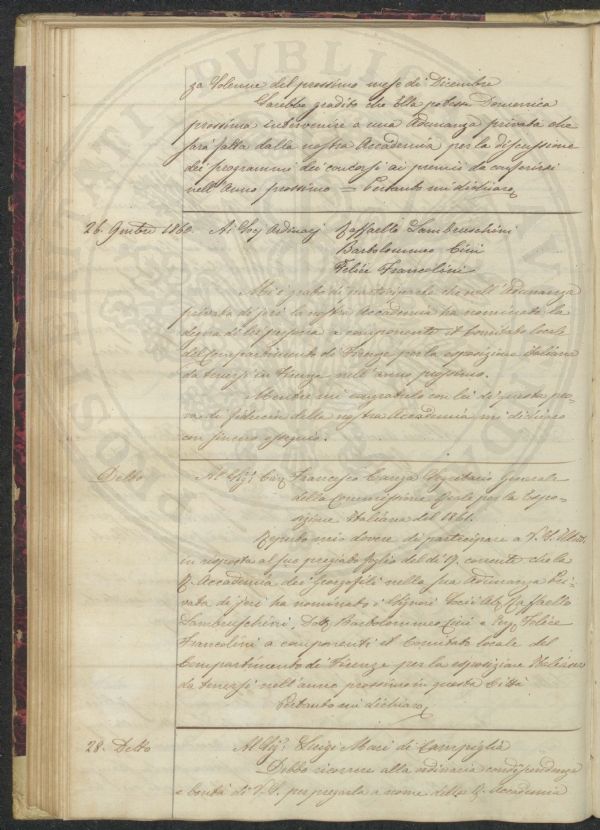 za Solenne del prossimo mese di Dicembre
Sarebbe gradito che Ella potesse Domenica
prossima intervenire a una Adunanza privata che
sarà fatta dalla nostra Accademia per la discussione
dei programmi dei concorsi ai premi da conferirsi
nell'Anno prossimo = Pertanto mi dichiaro
26. 9mbre 1860. Ai Sigg Ordinarj Raffaello Lambruschini
Bartolommeo Cini
Felice Francolini
Mi è grato di parteciparle che nell'Adunanza
privata di jeri la nostra Accademia ha nominato la
di lei persona a componente il Comitato locale
del Compartimento di Firenze per la esposizione italiana
da tenersi in Firenze nell'anno prossimo.
Mentre mi congratulo con lei di questa pro-
va di fiducia della nostra Accademia mi dichiaro
con sincero ossequio.
Detto Al Sigr Francesco Carega Segretario Generale
della Commissione Reale per la Espo-
sizione Italiana del 1861.
Reputo mio dovere di partecipare a V. S. Illma
in risposta al suo pregiato foglio del dì 17. corrente che la
R. Accademia dei Georgofili nella sua Adunanza Pri-
vata di jeri ha nominato i Signori Raffaello
Lambruschini, Dott Bartolommeo Cini e Felice
Francolini a componenti il Comitato locale del
Compartimento di Firenze per la esposizione Italiana
da tenersi nell'anno prossimo in questa Città
Pertanto mi dichiaro
28. Detto Al Sigr Luigi Masi di Campiglia
Debbo ricorrere alla ordinaria condiscendenza
e bontà di V. S. per pregarla a nome della R. Accademia
PVBLICO